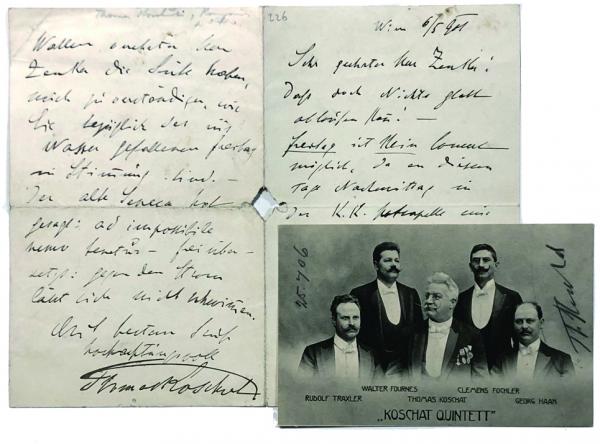 226
Wien 6/5 901
Sehr geehrter Herr Zenker!
Daß doch Nichts glatt
ablaufen kann! —
Freitag ist Kein Concert
möglich, da an diesem
Tage Nachmittag in
der K.K. Hofcapelle eine
Wollen geehrter Herr
Zenker die Güte haben,
mich zu verständigen, wie
Sie bezüglich des ins
Wasser gefallenen Freitag
in Stimmung sind. —
Der alte Seneca hat
gesagt: ad impossibile
nemo tenetur — frei über-
setzt: gegen den Strom
läßt sich nicht schwimmen.
Mit bestem Gruß
hochachtungsvoll
Thomas Koschat
25. 7 06
Th. Koschat
WALTER FOURNES
CLEMENS FOCHLER
RUDOLF TRAXLER
THOMAS KOSCHAT
GEORG HAAN
„KOSCHAT QUINTETT"